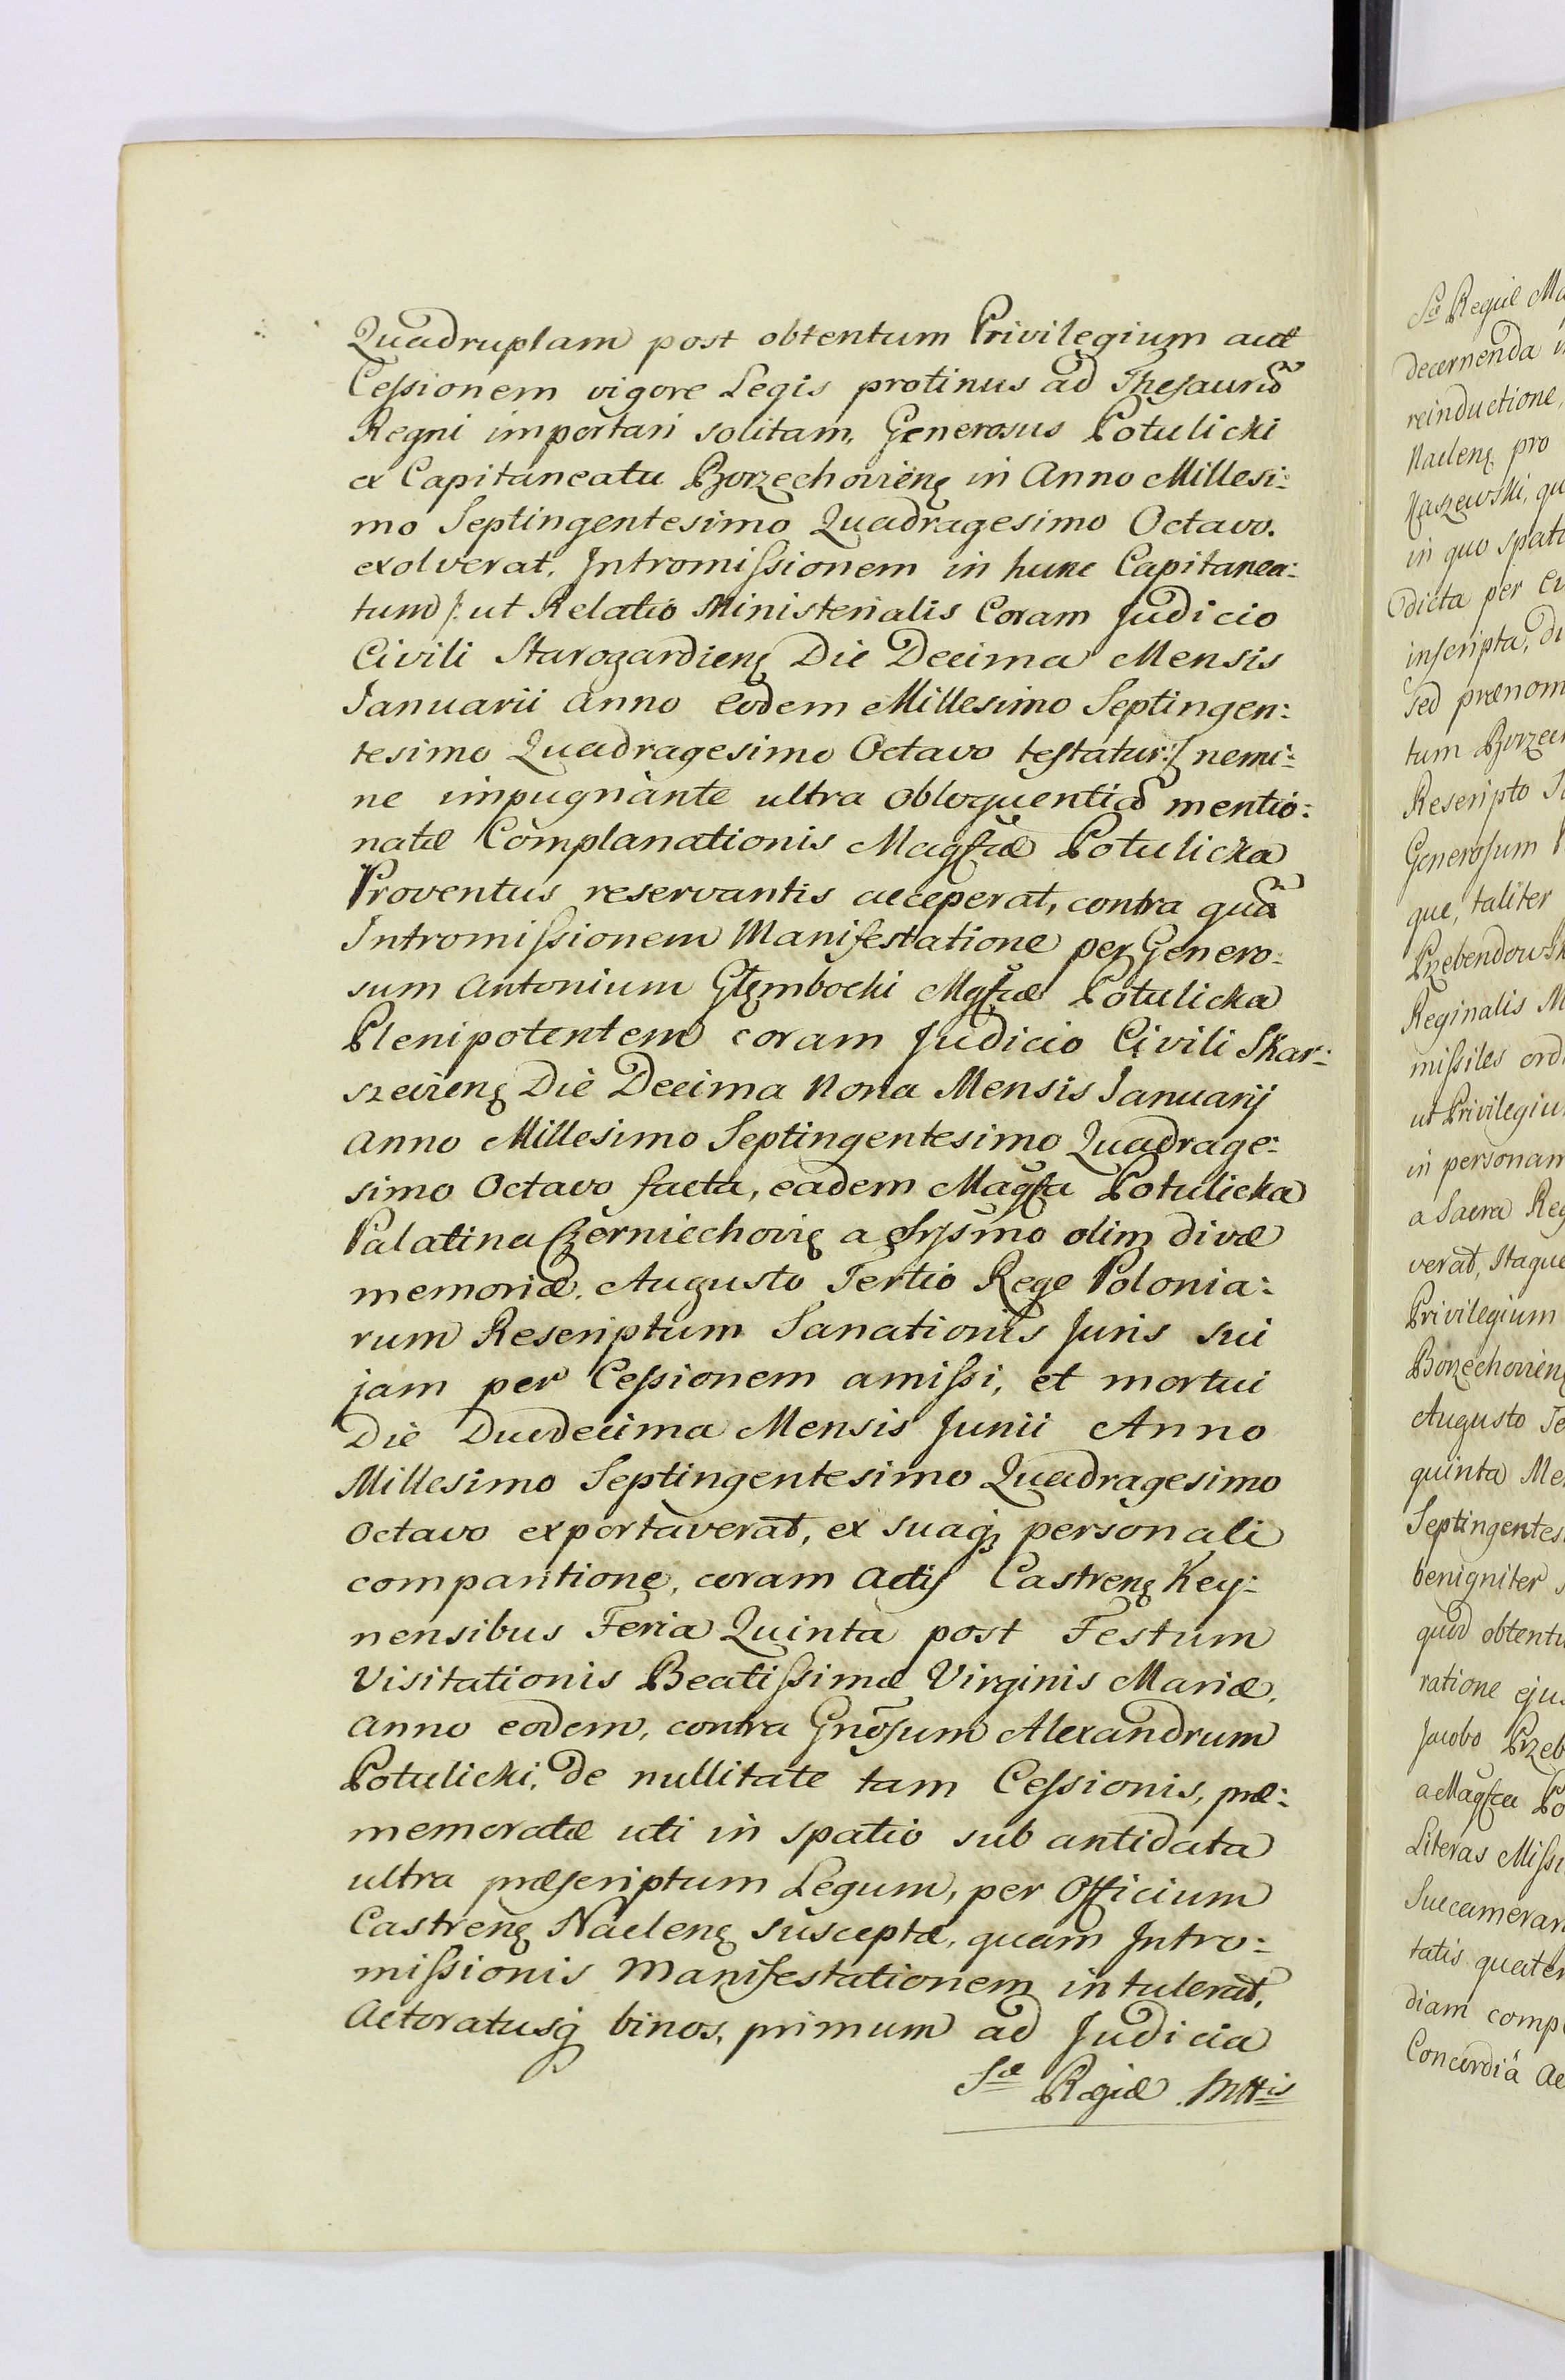 Quadruplam post obtentum Privilegium aut
Cessionem vigore Legis protinus ad Thesaurũ
Regni importari solitam, Generosus Potulicki
ex Capitaneatu Borzechovienę in Anno Millesi:
mo Septingentesimo Quadragesimo Octavo.
exolverat, Intromissionem in hunc Capitanea:
tum /: ut Relatio Ministerialis Coram Judicio
Civili Starogardienę Die Decima Mensis
Januarii Anno eodem Millesimo Septingen:
tesimo Quadragesimo Octavo testatur :/ nemi:
ne impugnante ultra obloquentiã mentio:
natæ Complanationis Magfcæ Potulicka
Proventus reservantis acceperat, contra quã
Intromissionem Manifestatione per Genero:
sum Antonium Głęmbocki Mgfcæ Potulicka
Plenipotentem coram Judicio Civili Skar:
szevienę Die Decima Nona Mensis Januarij
Anno Millesimo Septingentesimo Quadrage:
simo Octavo facta, eadem Magfca Potulicka
Palatina Czerniechovię a Srysmo olim divæ
memoriæ. Augusto Tertio Rege Polonia:
rum Rescriptum Sanationis Juris sui
jam per Cessionem amissi, et mortui
Die Duodecima Mensis Junii Anno
Millesimo Septingentesimo Quadragesimo
Octavo exportaverat, ex suaq; personali
comparitione, coram Actis Castrenę Key:
nensibus Feria Quinta post Festum
Visitationis Beatissimæ Virginis Mariæ.
Anno eodem, contra Gnõsum Alexandrum
Potulicki, de nullitate tam Cessionis, præ:
memoratæ uti in spatio sub antidata
ultra præscriptum Legum, per Officium
Castrenę Naclenę susceptæ, quam Intro:
missionis Manifestationem intulerat,
Actoratusq; binos, primum ad Judicia
Sæ Regiæ Mttis
Sæ Regiæ
decernenda
reinductione,
Naclenę pro
in quo
dicta per
inscripta,
sed
tum
Rescripto
Generosum
que, taliter
Reginalis
missiles
ut
in personam
a Sacra
verat, Itaque
Privilegium
Borzechovienę
Augusto
quinta
benigniter
quod
ratione
Jacobo
a Magfca
Literas
tatis
diam
Concordiã